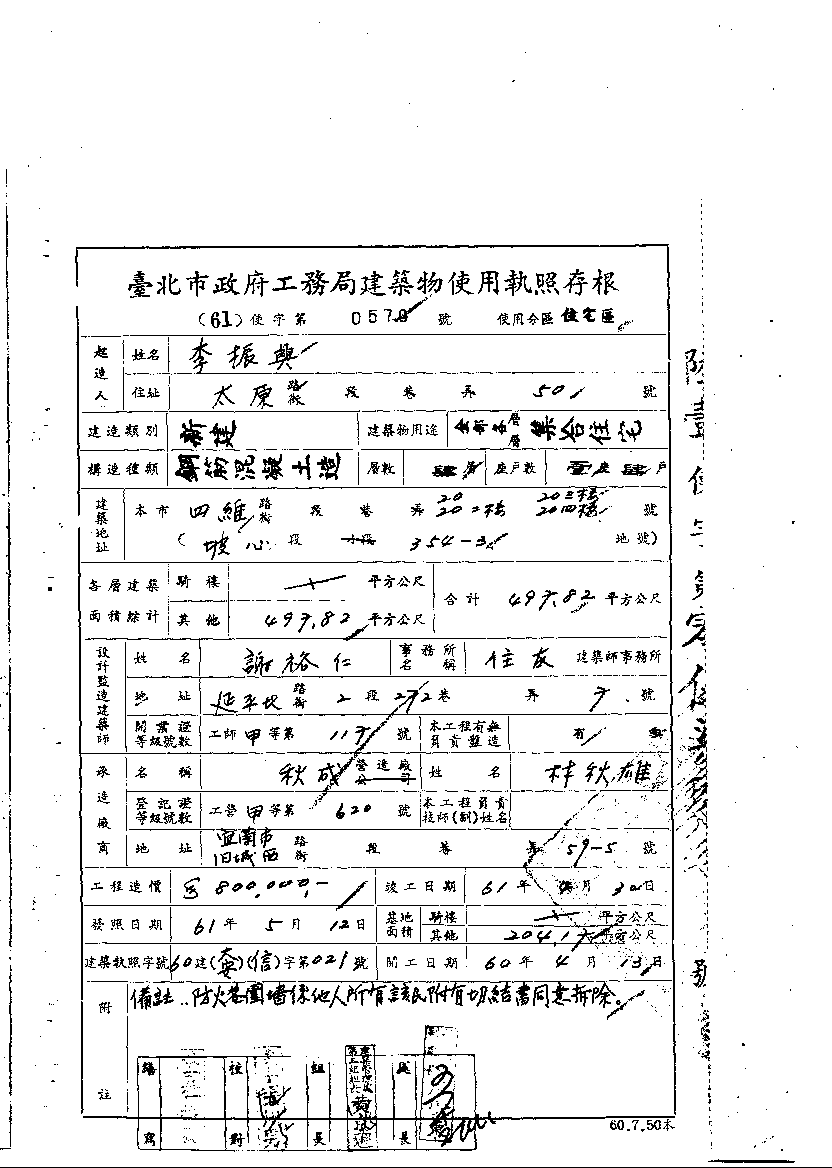 臺北市政府工務局建築物使用執照存根
(61)使字第 0570 號 使用分區 住宅區
起造人 姓名 李振興
住址 太原 路街 段 巷 弄 50 號
建造類別 新建 建築物用途 全部各層 集合住宅
構造種類 鋼筋混凝土造 層數 肆層 座戶數 壹座肆戶
建築地址 本市 四維 路街 段 巷 弄 20 20二樓 20三樓 20四樓 號
(坡心 段 小段 354-3 地號)
各層建築面積綜計 騎樓 平方公尺 合計 497.82 平方公尺
其他 497.82 平方公尺
設計監造建築師 姓名 謝裕仁 事務所名稱 住友 建築師事務所
地址 延平北 路街 2 段 272 巷 弄 7 號
開業證等級號數 工師 甲 等第 117 號 本工程有無負責監造 有 無
承造廠商 名稱 秋成 營造廠公司 姓名 林秋雄
登記證等級號數 工營 甲 等第 620 號 本工程負責技師(副)姓名
地址 宜蘭市旧城西 路街 段 巷 弄 59-5 號
工程造價 800,000,- 竣工日期 61年 4月 30日
發照日期 61年 5月 12日 基地面積 騎樓 平方公尺
其他 204.17 平方公尺
建築執照字號 60建(大安)(信)字第021號 開工日期 60年 4月 13日
附註 備註..防火巷圍墻係他人所有該民附有切結書同意拆除。
繕寫 校對 組長 長
60.7.50本